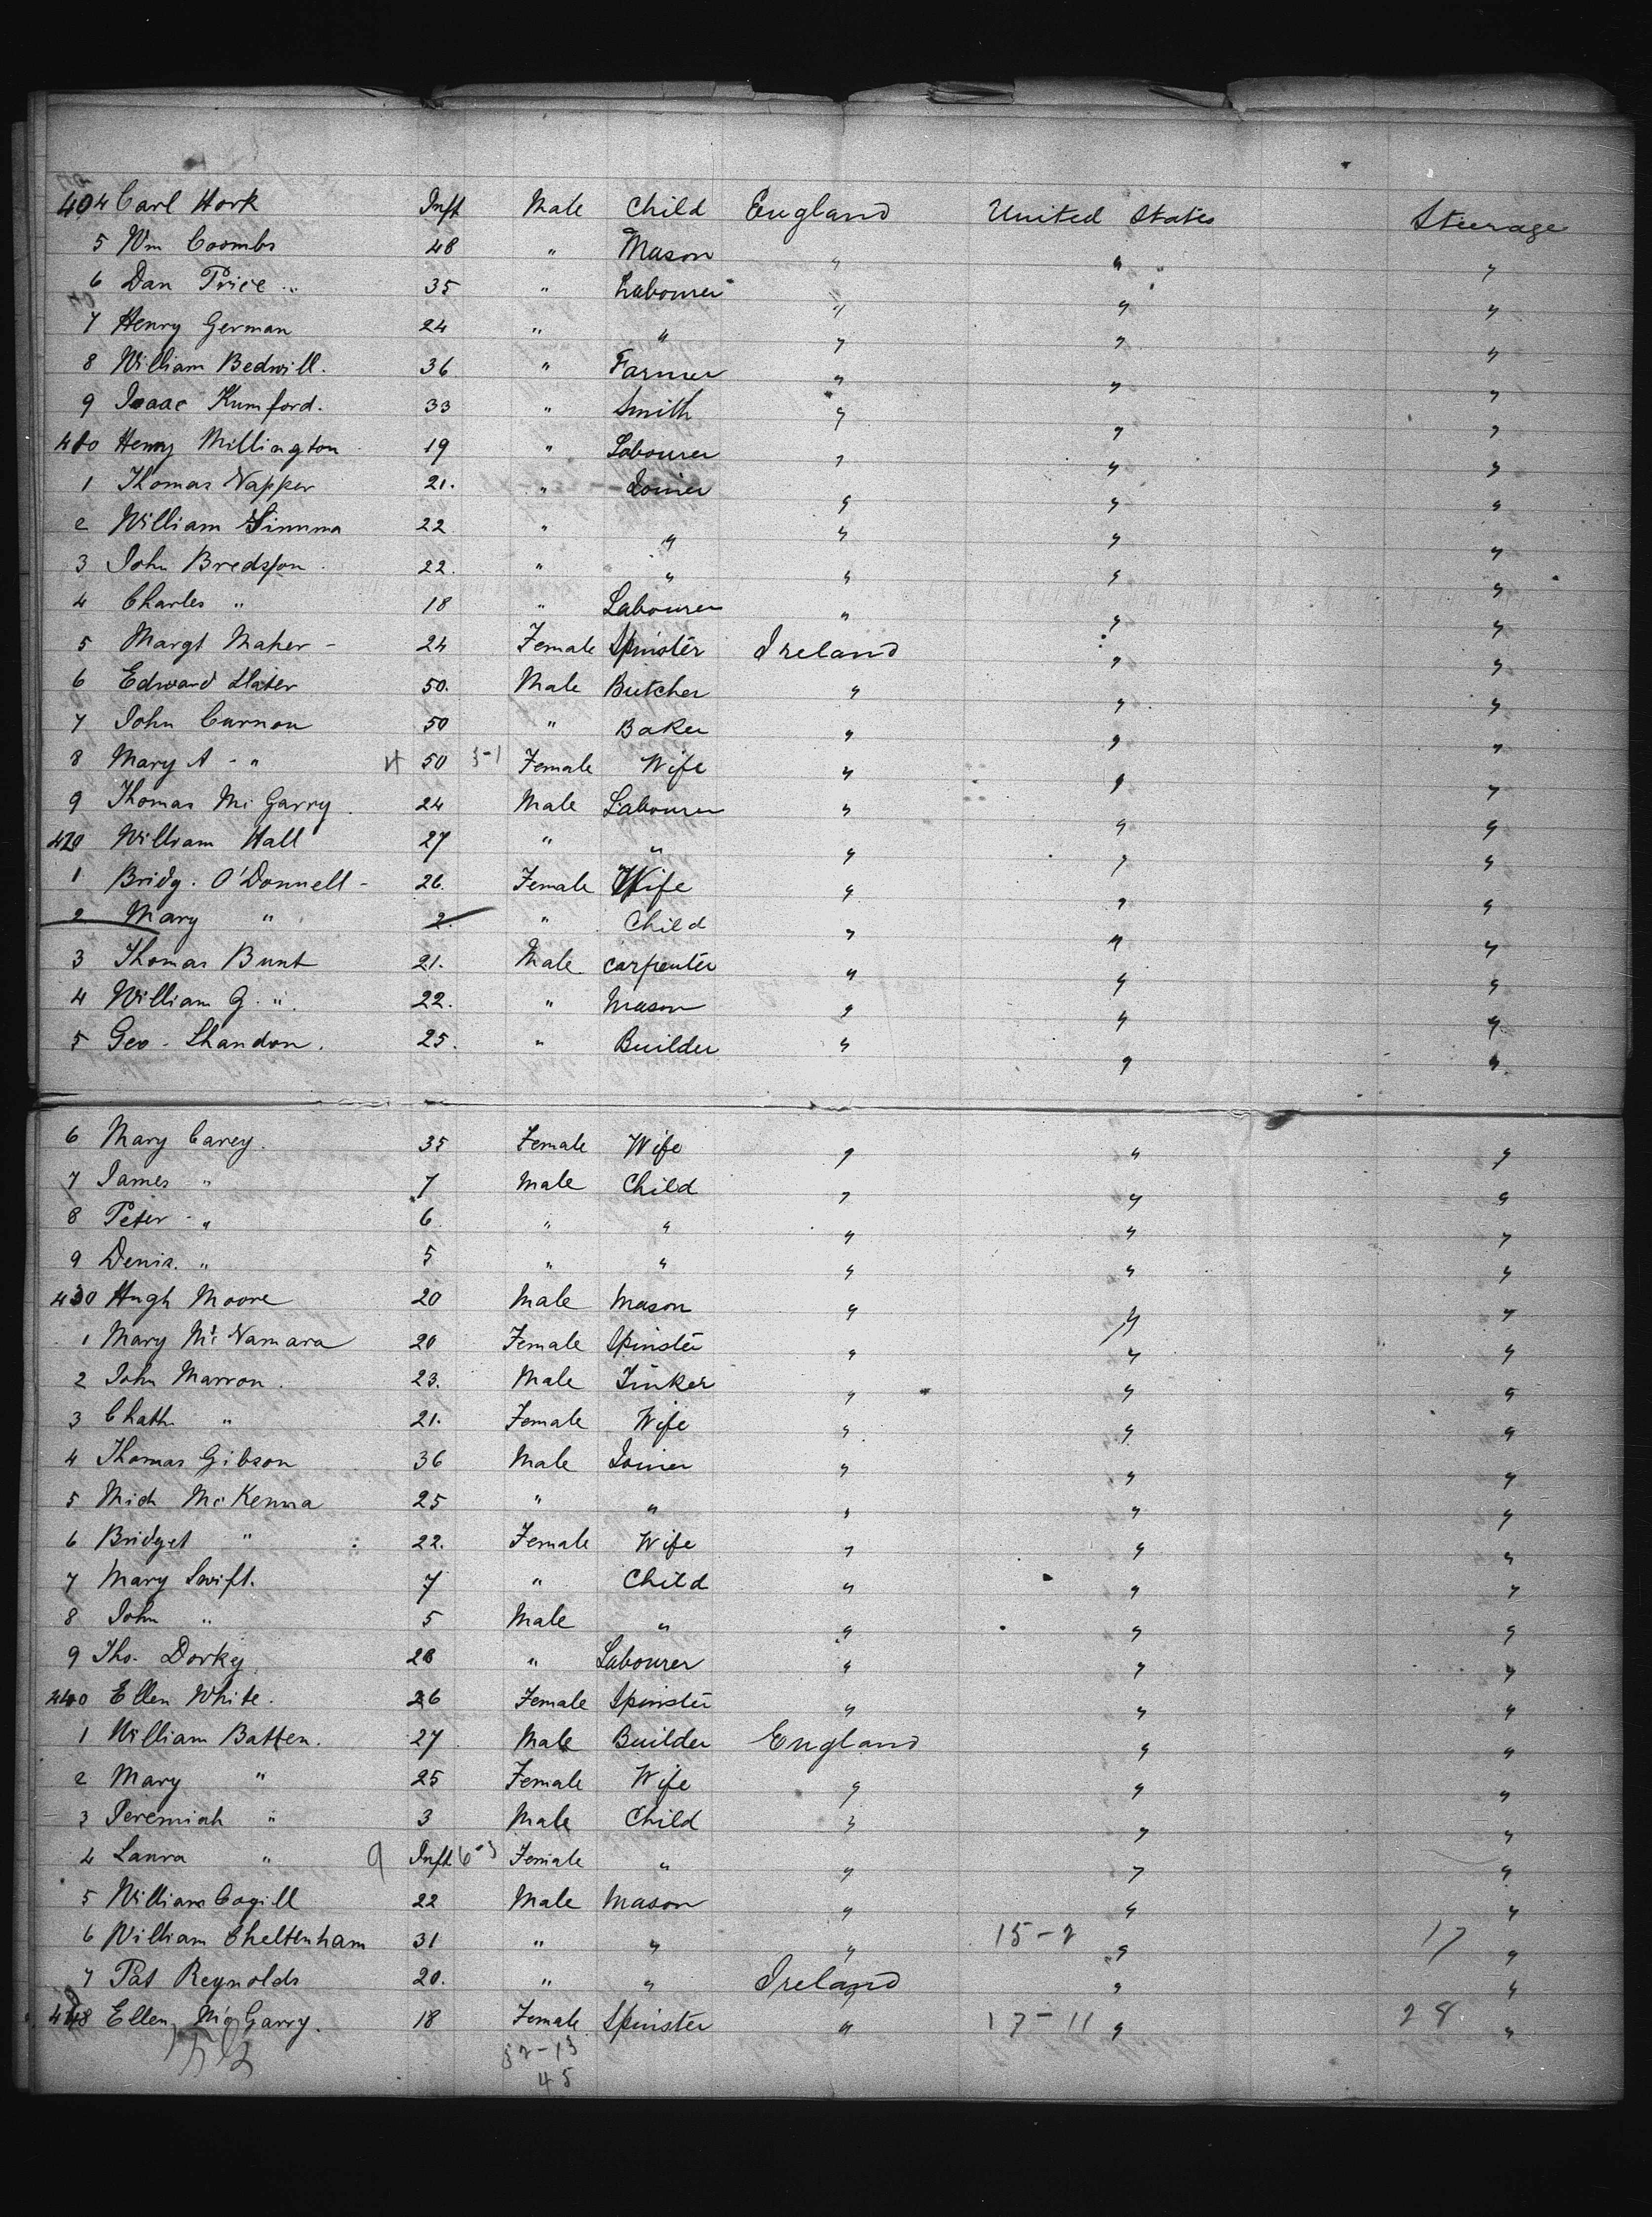 404 Carl Hork Inft Male Child England United States Steerage
5 Wm Coombs 48 " Mason " " "
6 Dan Price 35 " Labourer " " "
7 Henry German 24 " " " " "
8 William Bedwill. 36 " Farmer " " "
9 Isaac Kumford. 33 " Smith " " "
410 Henry Millington 19 " Labourer " " "
1 Thomas Napper 21. " Joiner " " "
2 William Simma 22 " " " " "
3 John Bredson 22. " " " " "
4 Charles " 18 " Labourer " " "
5 Margt Maher - 24 Female Spinster Ireland " "
6 Edward Slater 50. Male Butcher " " "
7 John Curnon 50 " Baker " " "
8 Mary A - " 4 50 3-1 Female Wife " " "
9 Thomas Mc Garry. 24 Male Labourer " " "
420 William Hall 27 " " " " "
1 Bridg. O'Donnell - 26. Female Wife " " "
2 Mary " 2. " Child " " "
3 Thomas Bunt 21. Male carpenter " " "
4 William G. " 22. " Mason " " "
5 Geo - Shandon. 25. " Builder " " "
6 Mary Carey. 35 Female Wife " " "
7 James " 7 Male Child " " "
8 Peter - " 6. " " " " "
9 Denis. " 5 " " " " "
430 Hugh Moore 20 Male Mason " " "
1 Mary Mc Namara 20 Female Spinster " " "
2 John Marron. 23. Male Tinker " " "
3 Cath " 21. Female Wife " " "
4 Thomas Gibson 36 Male Joiner " " "
5 Mich Mc Kenna 25 " " " " "
6 Bridget " 22. Female Wife " " "
7 Mary Swift. 7 " Child " " "
8 John " 5 Male " " " "
9 Tho. Dorkey 28 " Labourer " " "
440 Ellen White. 26 Female Spinster " " "
1 William Batten. 27 Male Builder England " "
2 Mary " 25 Female Wife " " "
3 Jeremiah " 3 Male Child " " "
4 Laura " 9 Inft 6-3 Female " " " "
5 William Cogill 22 Male Mason " " "
6 William Cheltenham 31 " " " 15-2 " 17 "
7 Pat Reynolds 20. " " Ireland " "
448 Ellen McGarry. 18 Female Spinster " 17-11 " 28 "
32-13
45